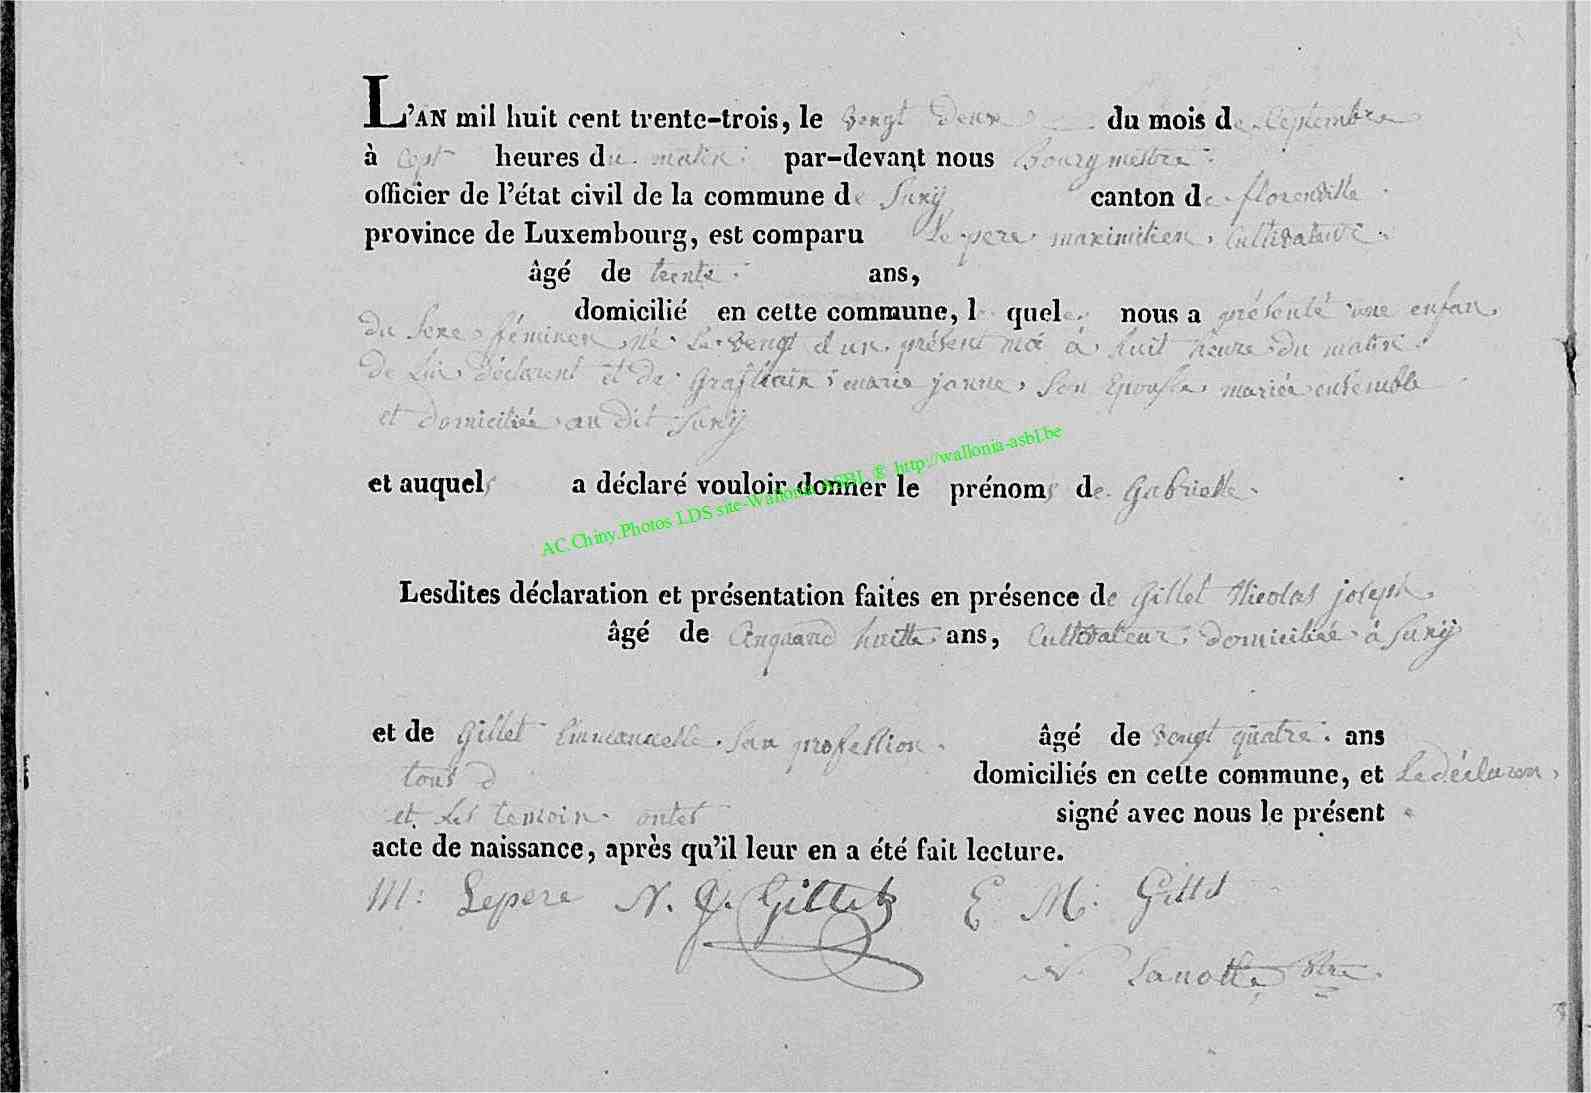 L'AN mil huit cent trente-trois, le vengt deux du mois de Septembre
à cept heures du matin par-devant nous Bourgmestre
officier de l'état civil de la commune de Suxÿ canton de florenville
province de Luxembourg, est comparu Le pere maximilien, Cultivateur
âgé de trente ans,
domicilié en cette commune, le quel nous a présenté une enfan
du sexe féminen né le vengt d'un présent moi à huit heure du matin
de Lui Déclarent et de marie janne, son Epousse mariée ensemble
et domiciliée au dit Suxÿ
et auquel a déclaré vouloir donner le prénoms de Gabrielle
AC.Chiny.Photos LDS site-Wallonia ASBL © http://wallonia-asbl.be
Lesdites déclaration et présentation faites en présence de Gillet Nicolas joseph
âgé de Cinquand huitte ans, Cultivateur domiciliée à Suxÿ
et de Gillet Emmanuelle, San profession âgé de vengt quatre ans
tous d domiciliés en cette commune, et Le déclaren,
et Les temoin ontes signé avec nous le présent
acte de naissance, après qu'il leur en a été fait lecture.
M: Lepere N. J. Gillet E M: Gillet
N Lanotte